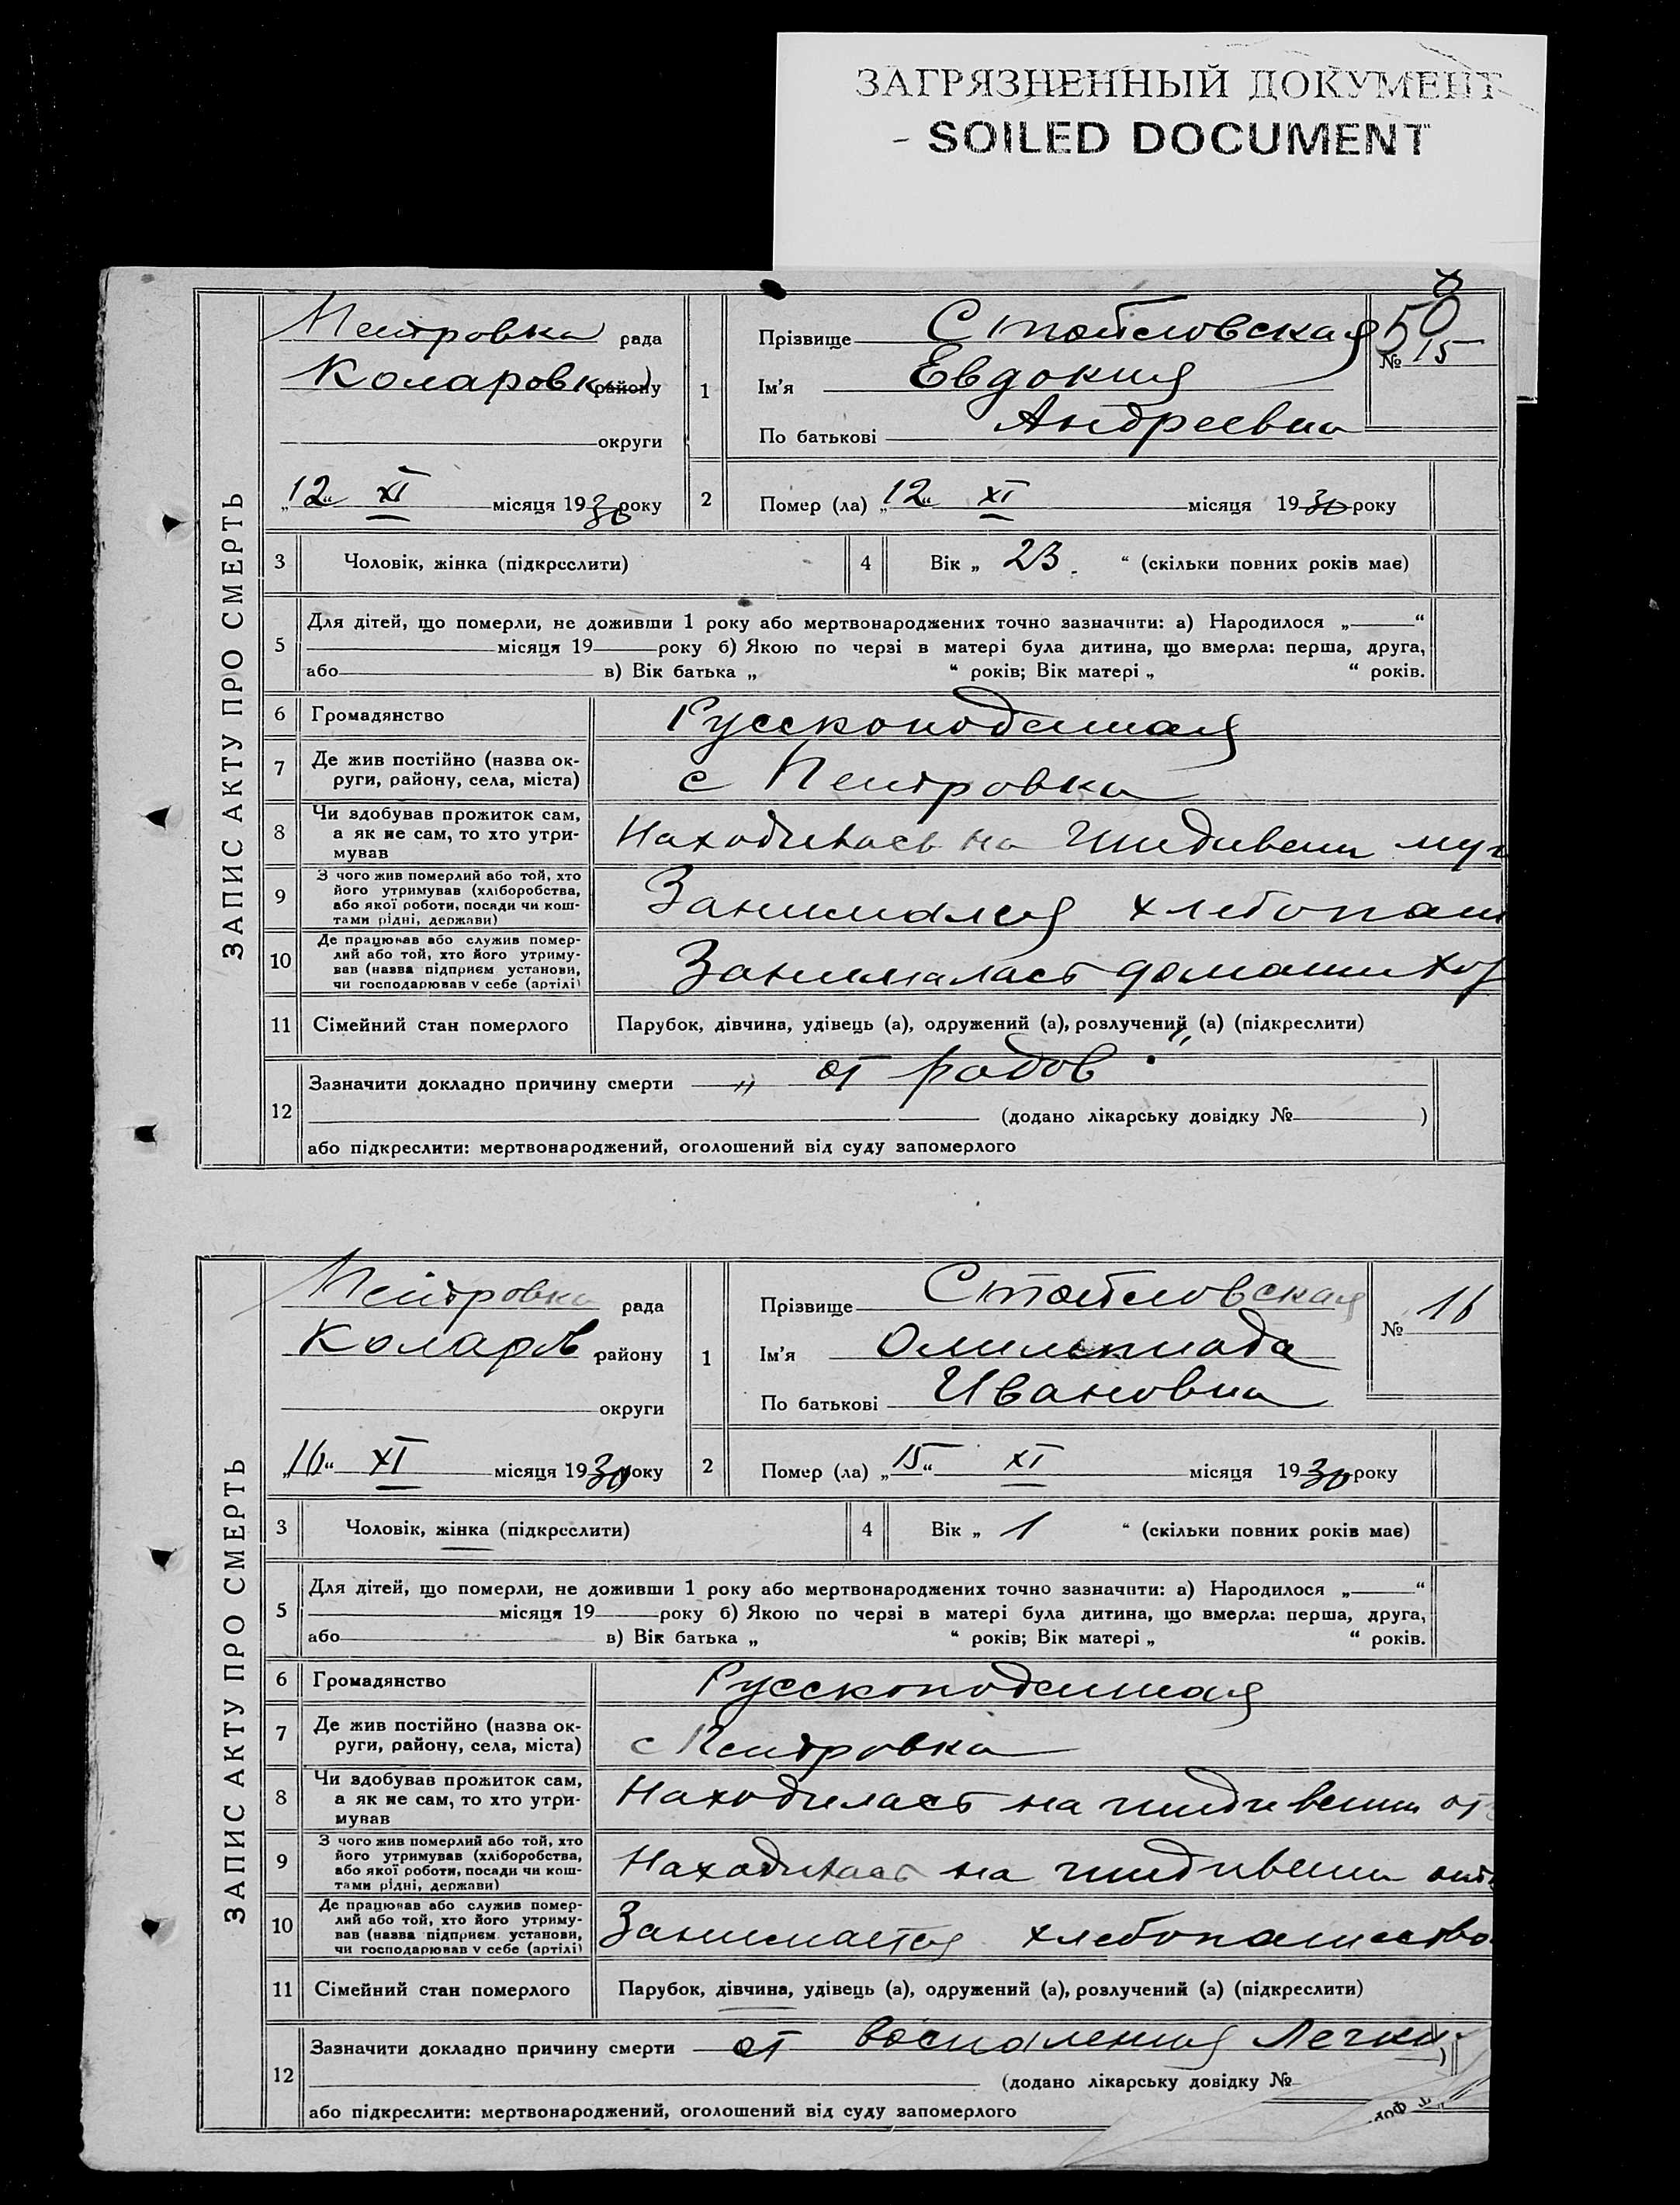 ЗАГРЯЗНЕННЫЙ ДОКУМЕНТ
- SOILED DOCUMENT
50
ЗАПИС АКТУ ПРО СМЕРТЬ
Петровка рада
Коларовк району
округи
„12“ XI місяця 1930 року
1 Прізвище Стойловская
Ім'я Евдокия
По батькові Андреевна
№ 15
2 Помер (ла) „12“ XI місяця 1930 року
3 Чоловік, жінка (підкреслити)
4 Вік „ 23. “ (скільки повних років має)
5 Для дітей, що померли, не доживши 1 року або мертвонароджених точно зазначити: а) Народилося „ “
місяця 19 року б) Якою по черзі в матері була дитина, що вмерла: перша, друга,
або в) Вік батька „ “ років; Вік матері „ “ років.
6 Громадянство Русскоподанная
7 Де жив постійно (назва ок-
руги, району, села, міста) с Петровка
8 Чи здобував прожиток сам,
а як не сам, то хто утри-
мував Находилась на иждивении муж
9 З чого жив померлий або той, хто
його утримував (хліборобства,
або якої роботи, посади чи кош-
тами рідні, держави) Занимался хлебопаш
10 Де працював або служив помер-
лий або той, хто його утриму-
вав (назва підприєм установи,
чи господарював у себе (артілі) Занималась домашн хоз
11 Сімейний стан померлого Парубок, дівчина, удівець (а), одружений (а), розлучений (а) (підкреслити)
12 Зазначити докладно причину смерти „ от родов “
(додано лікарську довідку № )
або підкреслити: мертвонароджений, оголошений від суду запомерлого
ЗАПИС АКТУ ПРО СМЕРТЬ
Петровка рада
Коларов району
округи
„16“ XI місяця 1930 року
1 Прізвище Стойловская
Ім'я Олимпиада
По батькові Ивановна
№ 16
2 Помер (ла) „15“ XI місяця 1930 року
3 Чоловік, жінка (підкреслити)
4 Вік „ 1 “ (скільки повних років має)
5 Для дітей, що померли, не доживши 1 року або мертвонароджених точно зазначити: а) Народилося „ “
місяця 19 року б) Якою по черзі в матері була дитина, що вмерла: перша, друга,
або в) Вік батька „ “ років; Вік матері „ “ років.
6 Громадянство Русскоподанная
7 Де жив постійно (назва ок-
руги, району, села, міста) с Петровка
8 Чи здобував прожиток сам,
а як не сам, то хто утри-
мував Находилась на иждивении от
9 З чого жив померлий або той, хто
його утримував (хліборобства,
або якої роботи, посади чи кош-
тами рідні, держави) Находилась на иждивении отц
10 Де працював або служив помер-
лий або той, хто його утриму-
вав (назва підприєм. установи,
чи господарював у себе (артілі) Занимается хлебопашество
11 Сімейний стан померлого Парубок, дівчина, удівець (а), одружений (а), розлучений (а) (підкреслити)
12 Зазначити докладно причину смерти от воспаления Легких
(додано лікарську довідку № )
або підкреслити: мертвонароджений, оголошений від суду запомерлого